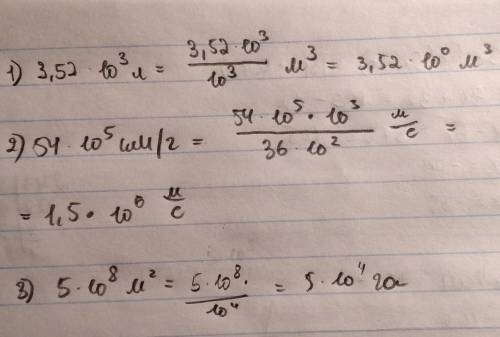 1) 3,52 · 10³ л = 3,52·10³ / 10³ м³ = 3,52 · 10⁰ м³
2) 54 · 10⁵ км/г = 54 · 10⁵ · 10³ / 36 · 10² м/с =
= 1,5 · 10⁶ м/с
3) 5 · 10⁸ м² = 5 · 10⁸ · / 10⁴ = 5 · 10⁴ га